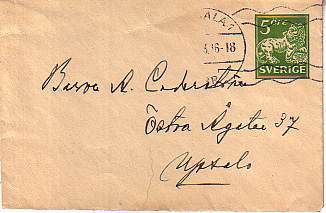 ALA 1
3.16-18
5 ÖRE
SVERIGE
Baron A. Cederström
Östra Ågatan 37
Upsala